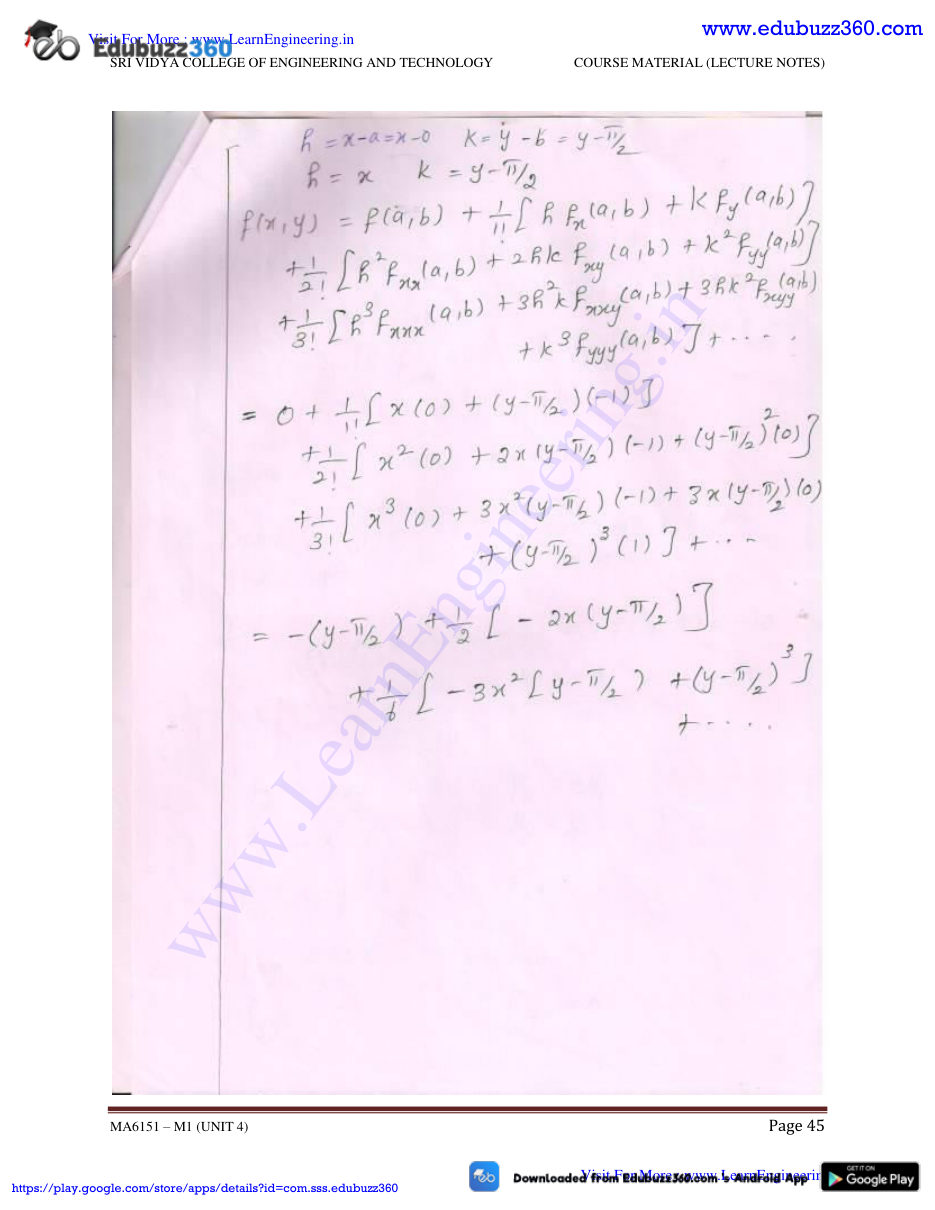 www.edubuzz360.com
Visit For More : www.LearnEngineering.in
Edubuzz360
SRI VIDYA COLLEGE OF ENGINEERING AND TECHNOLOGY COURSE MATERIAL (LECTURE NOTES)
h = x-a = x-0 k = y-b = y-π/2
h = x k = y-π/2
f(x,y) = f(a,b) + 1/1! [ h f_x(a,b) + k f_y(a,b) ]
+ 1/2! [ h² f_xx(a,b) + 2hk f_xy(a,b) + k² f_yy(a,b) ]
+ 1/3! [ h³ f_xxx(a,b) + 3h²k f_xxy(a,b) + 3hk² f_xyy(a,b)
+ k³ f_yyy(a,b) ] + ....
= 0 + 1/1! [ x(0) + (y-π/2)(-1) ]
+ 1/2! [ x²(0) + 2x(y-π/2)(-1) + (y-π/2)²(0) ]
+ 1/3! [ x³(0) + 3x²(y-π/2)(-1) + 3x(y-π/2)(0)
+ (y-π/2)³(1) ] + ...
= -(y-π/2) + 1/2 [ - 2x(y-π/2) ]
+ 1/6 [ - 3x² [ y-π/2 ) + (y-π/2)³ ]
+ ....
www.LearnEngineering.in
MA6151 – M1 (UNIT 4) Page 45
https://play.google.com/store/apps/details?id=com.sss.edubuzz360
Downloaded from EduBuzz360.com's Android App
Visit For More : www.LearnEngineerin
GET IT ON
Google Play